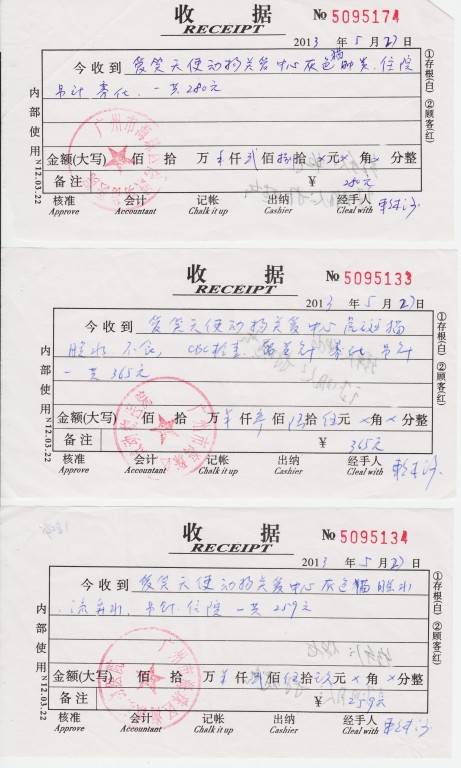 收 据
RECEIPT
№ 5095174
2013 年 5 月 27 日
今收到 爱笑天使动物关爱中心灰色猫 住院
吊针 雾化 一共280元
金额(大写) 佰 拾 万 仟 贰 佰 捌 拾 元 角 分整
备注 ¥ 280元
核准 会计 记帐 出纳 经手人
Approve Accountant Chalk it up Cashier Cleal with
内部使用 N12.03.22
①存根(白) ②顾客(红)
收 据
RECEIPT
№ 5095133
2013 年 5 月 27 日
今收到 爱笑天使动物关爱中心 猫
不食, CBC检查 雾化 吊针
一共 365元
金额(大写) 佰 拾 万 仟 叁 佰 拾 伍 元 角 分整
备注 ¥ 365元
核准 会计 记帐 出纳 经手人
Approve Accountant Chalk it up Cashier Cleal with
内部使用 N12.03.22
①存根(白) ②顾客(红)
收 据
RECEIPT
№ 5095134
2013 年 5 月 27 日
今收到 爱笑天使动物关爱中心灰色猫
流鼻水, 吊针 住院 一共 259元
金额(大写) 佰 拾 万 仟 贰 佰 伍 拾 元 角 分整
备注 ¥ 259元
核准 会计 记帐 出纳 经手人
Approve Accountant Chalk it up Cashier Cleal with
内部使用 N12.03.22
①存根(白) ②顾客(红)